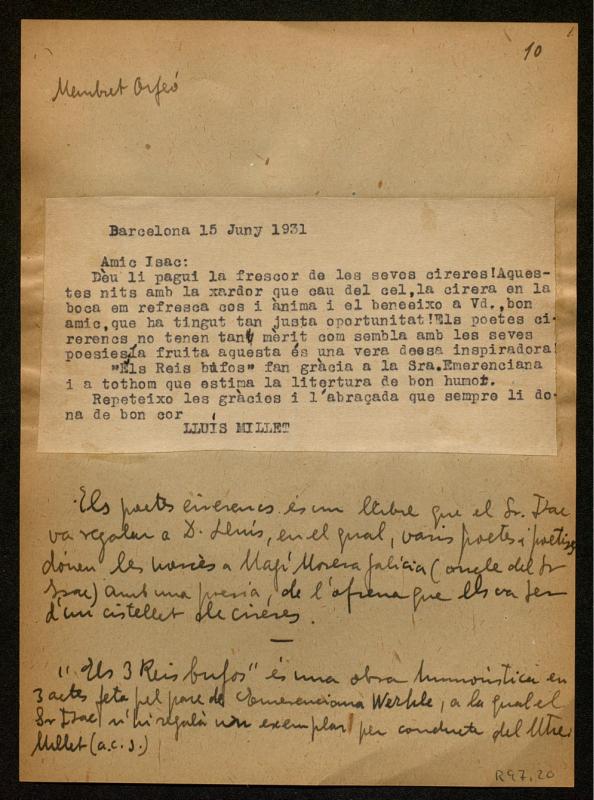 10
Membret Orfeó
Barcelona 15 Juny 1931
Amic Isac:
Dèu li pagui la frescor de les seves cireres!Aques-
tes nits amb la xardor que cau del cel,la cirera en la
boca em refresca cos i ànima i el beneeixo a Vd.,bon
amic,que ha tingut tan justa oportunitat!Els poetes ci-
rerencs no tenen tant mèrit com sembla amb les seves
poesies;la fruita aquesta és una vera deesa inspiradora!
"Els Reis bufos" fan gràcia a la Sra.Emerenciana
i a tothom que estima la litertura de bon humor.
Repeteixo les gràcies i l'abraçada que sempre li do-
na de bon cor
LLUÍS MILLET
Els poetes cirerencs és un llibre que el Sr. Isac
va regalar a D. Lluís, en el qual, varis poetes i poetises
dónen les mercès a Magí Morera Galícia (oncle del Sr
Isac) amb una poesia, de l'ofrena que els va fer
d'un cistellet de cireres.
"Els 3 Reis bufos" és una obra humorística en
3 actes feta pel pare de Emerenciana Werhle, a la qual el
Sr Isac n'hi regalà un exemplar per conducte del Mtre
Millet (a.c.s.)
R97.20